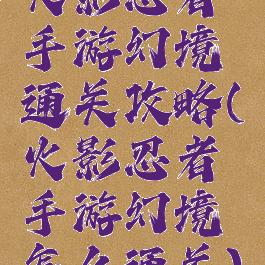 火影忍者
手游幻境
通关攻略(
火影忍者
手游幻境
怎么通关)